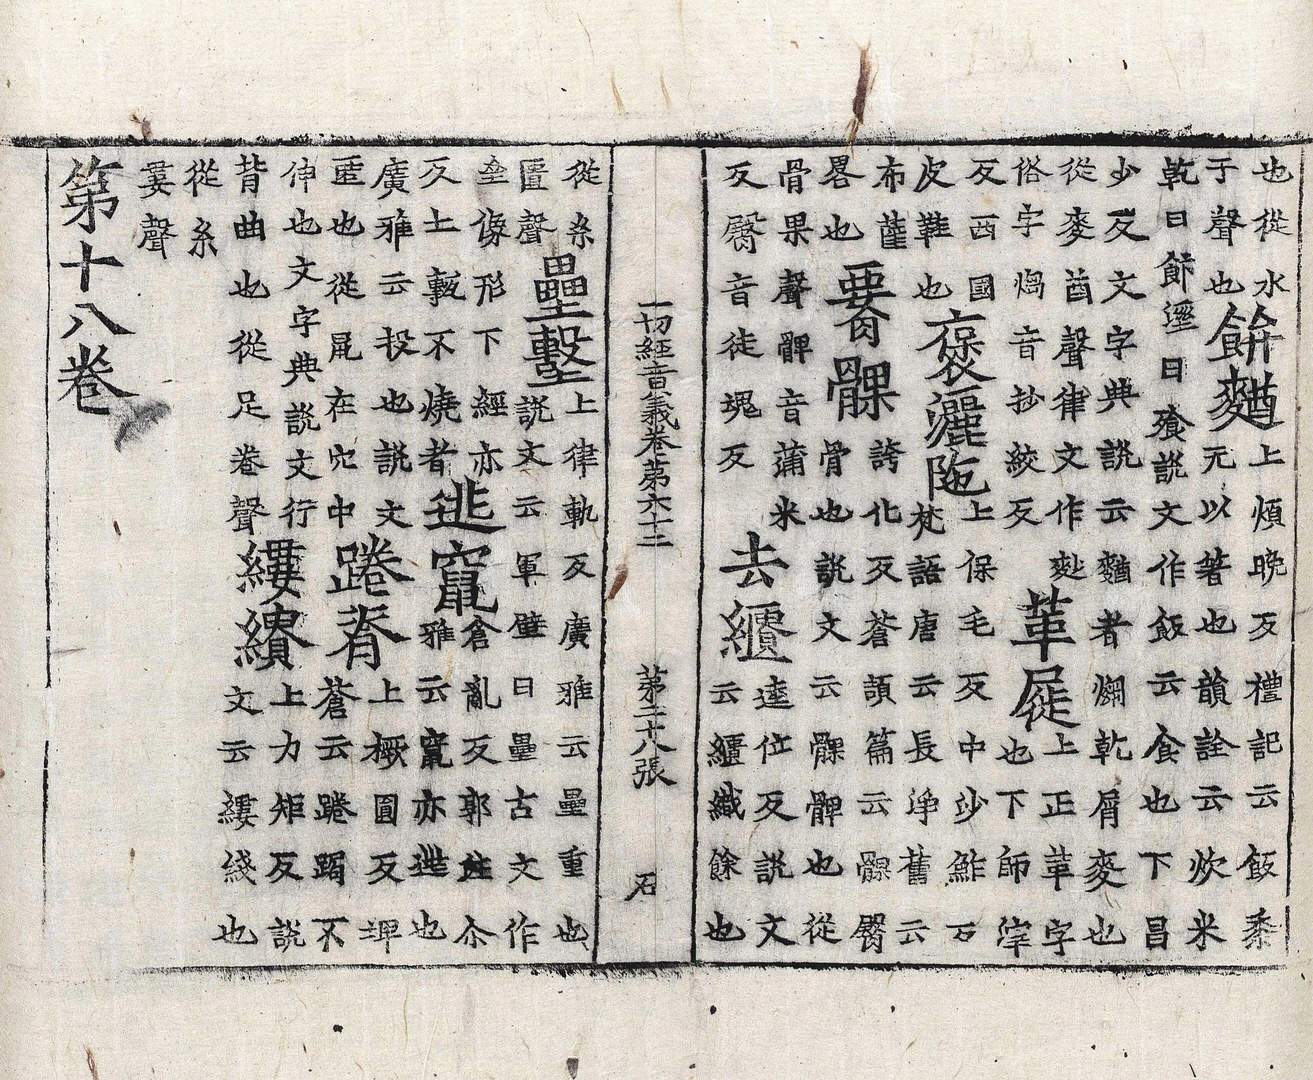 也從水
子聲也
餅䴬
上煩晚反禮記云飯黍
无以箸也韻詮云炊米
乾曰餰溼曰飱說文作飯云食也下昌
少反文字典說云䴬者煼乾屑麥也
從麥酋聲律文作麨
俗字煼音抄絞反
革屣
上正革字
也下師滓
反西國
皮鞋也
褒灑陁
上保毛反中沙鮓石
梵語唐云長淨舊云
布薩
畧也
䯊髁
誇化反蒼頡篇云髁臀
骨也說文云髁髀也從
骨果聲髀音蒲米
反臀音徒塊反
去繢
逵位反說文
云繢織餘也
一切經音義卷第六十二 第二十八張 石
從糸
匱聲
壘墼
上律軌反廣雅云壘重也
說文云軍壁曰壘古文作
垒像形下經亦
反土墼不燒者
逃竄
倉亂反郭註尒
雅云竄亦逃也
廣雅云投也說文
匿也從鼠在穴中
踡脊
上橛圓反埤
蒼云踡跼不
伸也文字典說文行
背曲也從足卷聲
縷繢
上力矩反說
文云縷綫也
從糸
婁聲
第十八卷